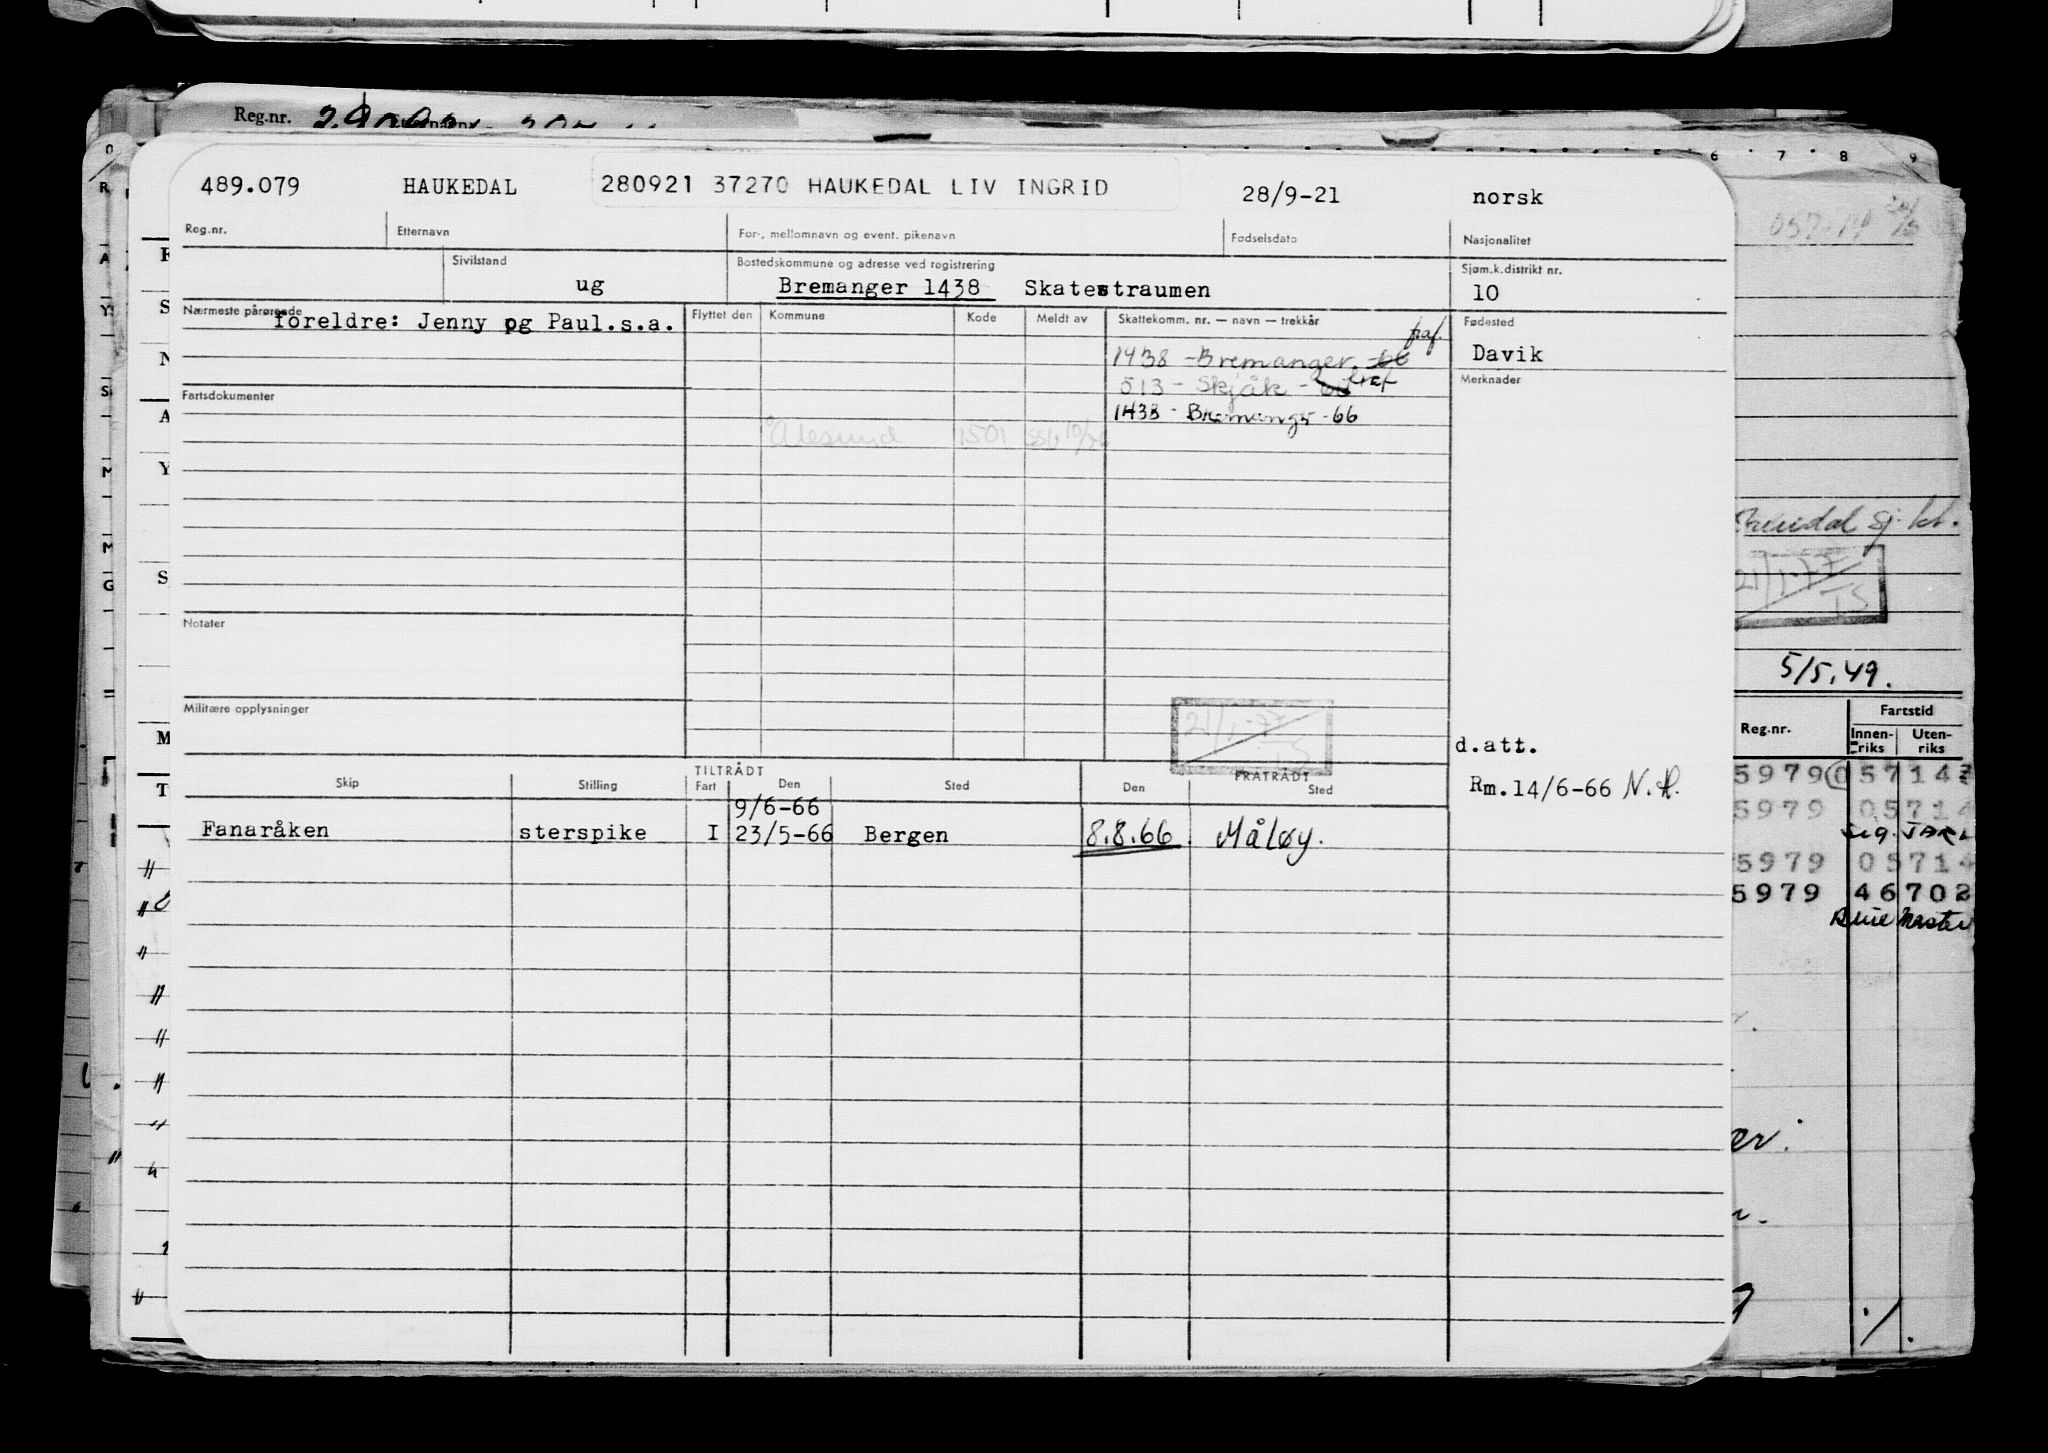 Reg.nr.
489.079 HAUKEDAL 280921 37270 HAUKEDAL LIV INGRID 28/9-21 norsk
Reg.nr. Etternavn For-, mellomnavn og event. pikenavn Fødselsdato Nasjonalitet
Sivilstand Bostedskommune og adresse ved registrering Sjøm.k.distrikt nr.
ug Bremanger 1438 Skatestraumen 10
Nærmeste pårørende Flyttet den Kommune Kode Meldt av Skattekomm. nr. — navn — trekkår Fødested
foreldre: Jenny og Paul.s.a.
1438 - Bremanger - 66 Davik
Fartsdokumenter 513 - Skjåk - Merknader
1438 - Bremanger - 66
Ålesund 1501
Notater
Militære opplysninger
21/1-77
d.att.
TILTRÅDT FRATRÅDT
Skip Stilling Fart Den Sted Den Sted
Rm.14/6-66 N.H.
9/6-66
Fanaråken sterspike I 23/5-66 Bergen 8.8.66 Måløy.
6 7 8 9
sj. kl.
21/1-77
5/5.49.
Reg.nr. Fartstid
Innen-riks Uten-riks
5979 05714
5979 05714
5979 05714
5979 46702
Blue Master